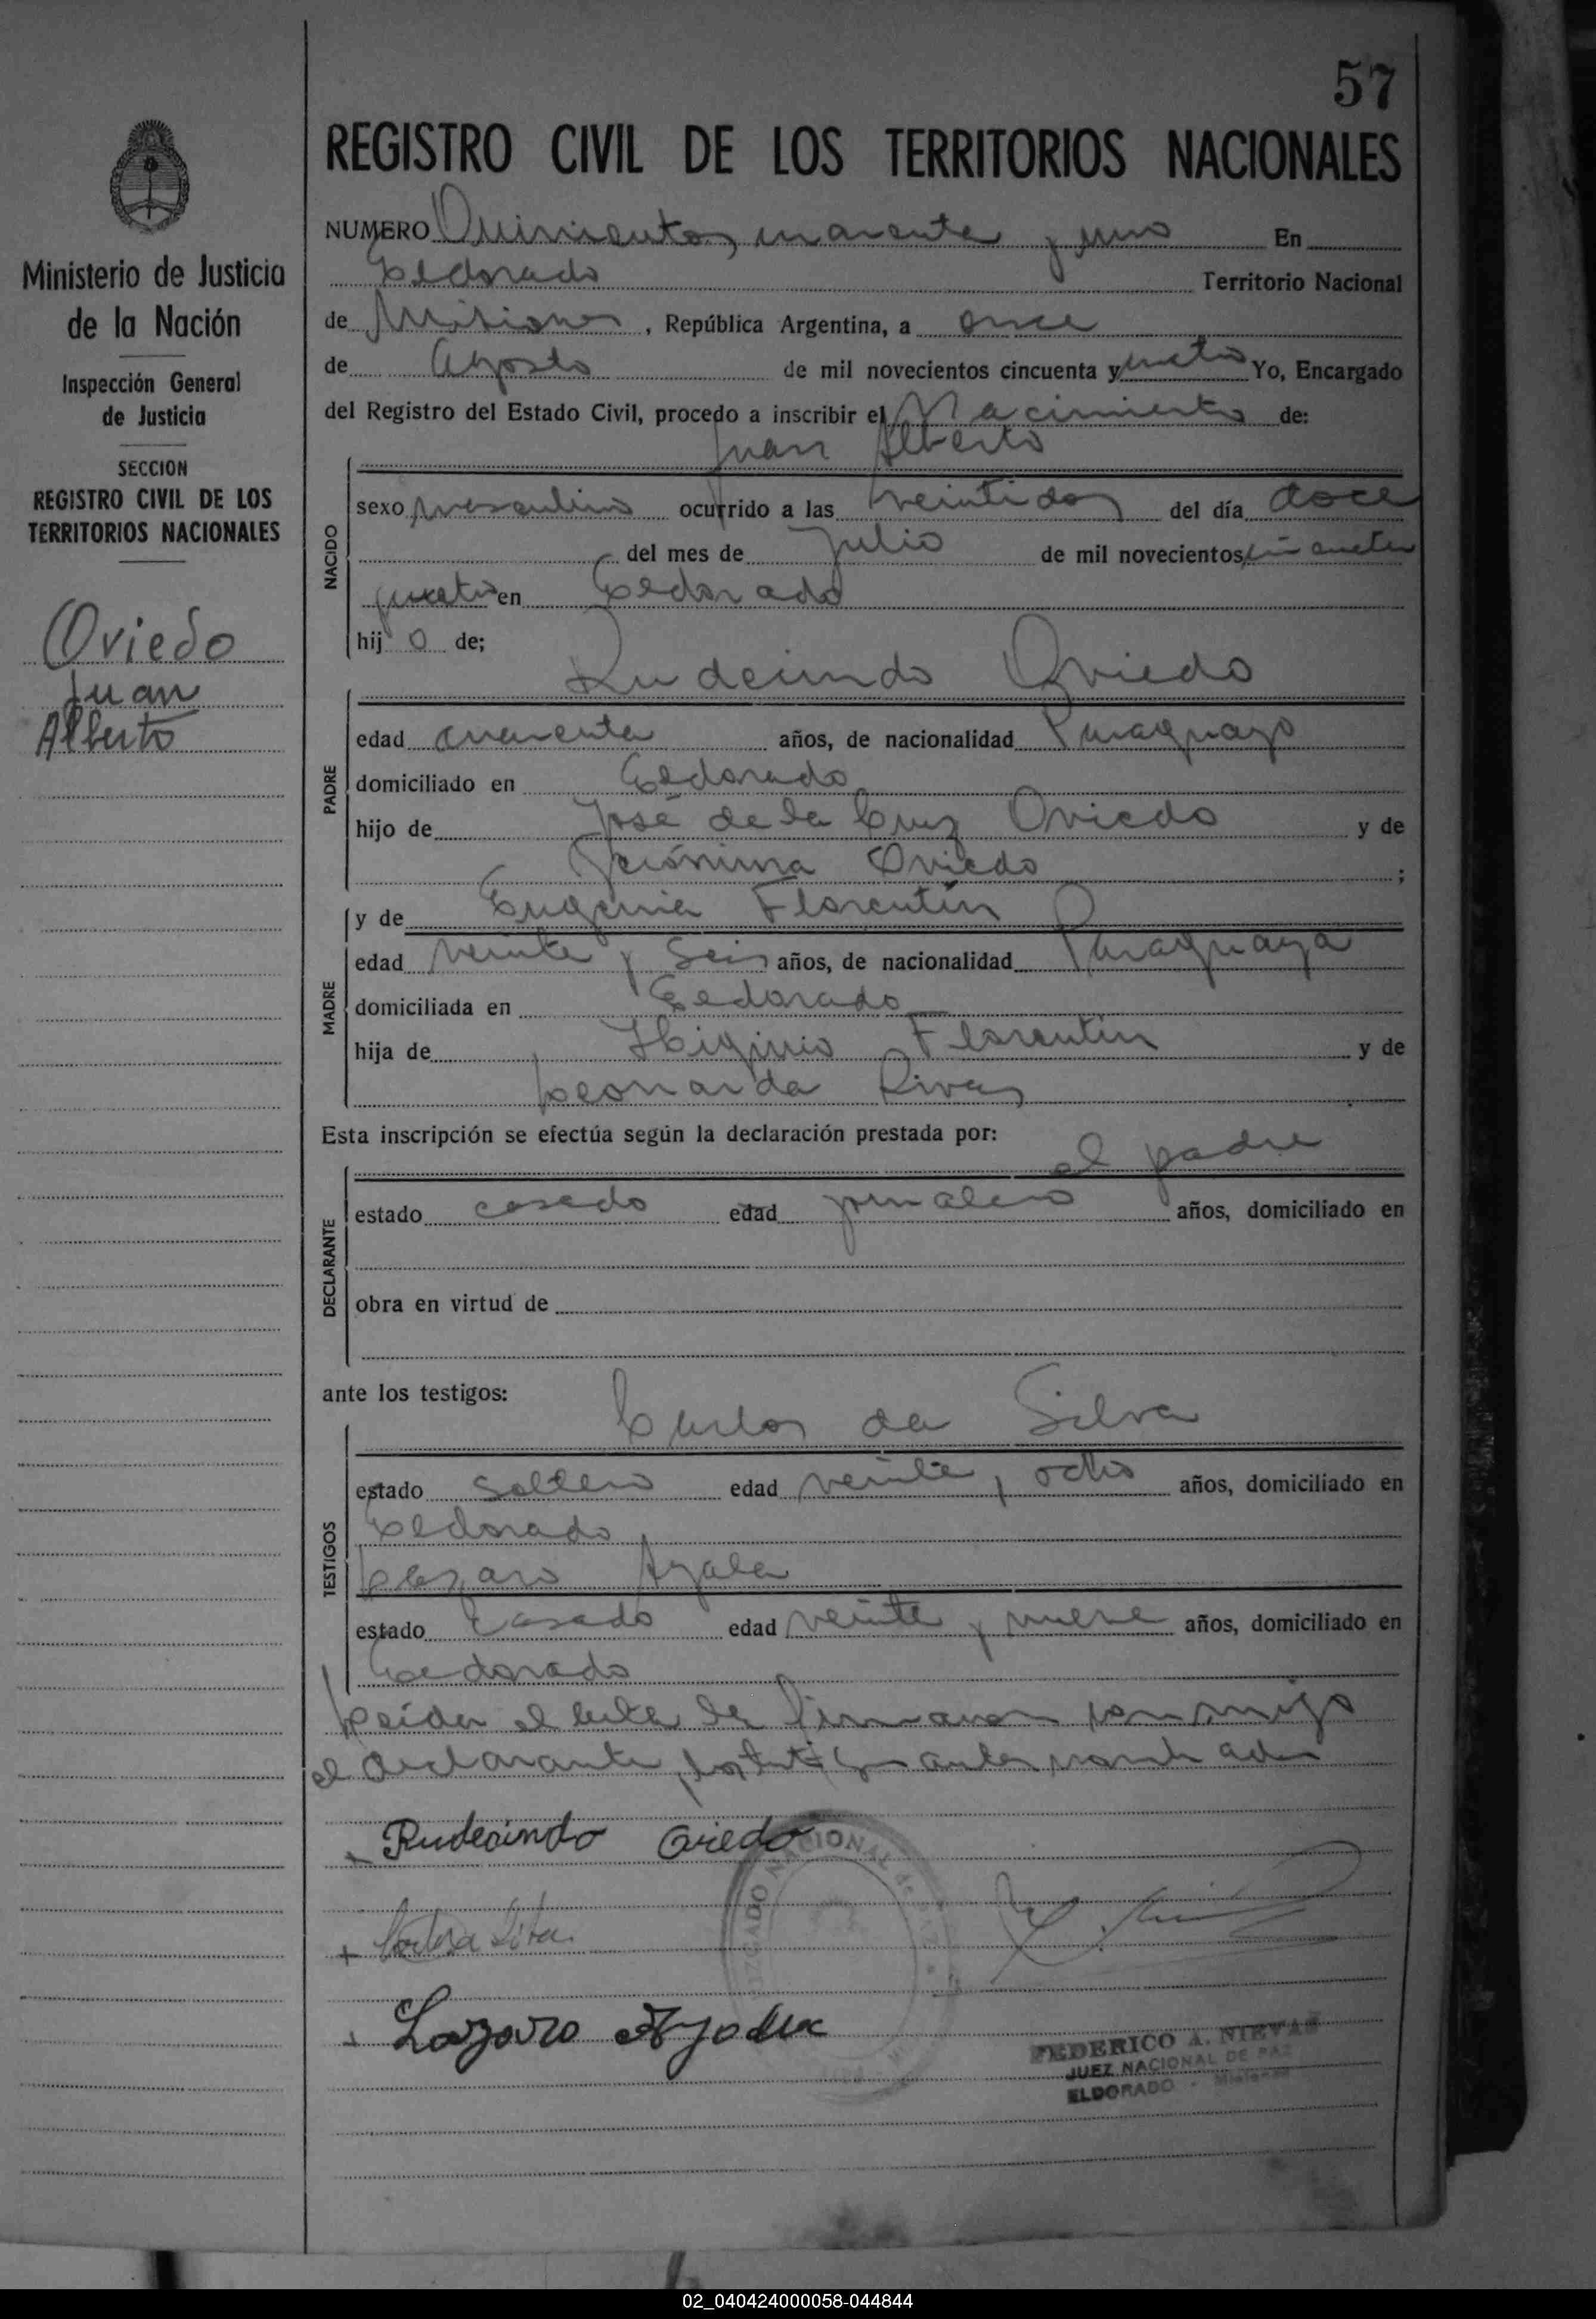 57
REGISTRO CIVIL DE LOS TERRITORIOS NACIONALES
Ministerio de Justicia
de la Nación
Inspección General
de Justicia
SECCION
REGISTRO CIVIL DE LOS
TERRITORIOS NACIONALES
Oviedo
Juan
Alberto
NUMERO Quinientos cuarenta y uno En
Eldorado Territorio Nacional
de Misiones, República Argentina, a once
de Agosto de mil novecientos cincuenta y cuatro Yo, Encargado
del Registro del Estado Civil, procedo a inscribir el Nacimiento de:
Juan Alberto
NACIDO
sexo masculino ocurrido a las veintidos del día doce
del mes de Julio de mil novecientos cincuenta
y cuatro en Eldorado
hijo de;
Rudecindo Oviedo
PADRE
edad cuarenta años, de nacionalidad Paraguayo
domiciliado en Eldorado
hijo de José de la Cruz Oviedo y de
Jerónima Oviedo ;
y de Eugenia Florentín
MADRE
edad veinte y seis años, de nacionalidad Paraguaya
domiciliada en Eldorado
hija de Higinio Florentín y de
Leonarda Rivas
Esta inscripción se efectúa según la declaración prestada por:
el padre
DECLARANTE
estado casado edad jornalero años, domiciliado en
obra en virtud de
ante los testigos:
Carlos da Silva
TESTIGOS
estado soltero edad veinte y ocho años, domiciliado en
Eldorado
Lazaro Ayala
estado casado edad veinte y nueve años, domiciliado en
Eldorado
Leida el acta la firmaron conmigo
el declarante y los testigos antes nombrados
Rudecindo Oviedo
Lazaro Ayala
FEDERICO A. NIEVAS
JUEZ NACIONAL DE PAZ
ELDORADO - Misiones
02_040424000058-044844